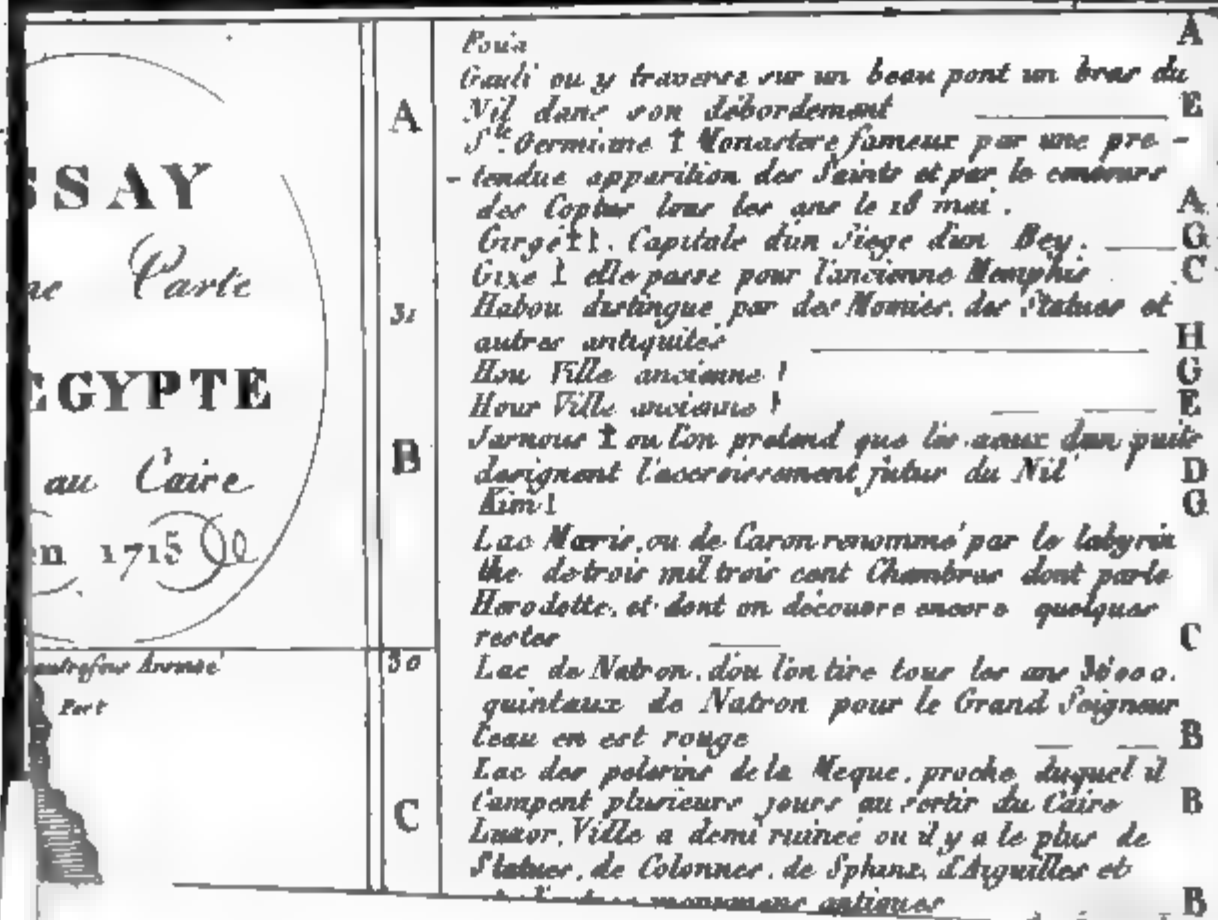 SSAY
ne Carte
EGYPTE
au Caire
en 1715
autrefois Arsinoé
Port
A
31
B
30
C
Fouá A
Gauli ou y traverse sur un beau pont un bras du
Nil dans son débordement E
Ste. Germiane † Monastere fameux par une pre-
-tendue apparition des Saints et par le concours
des Coptes tous les ans le 18 mai. A
Girgé †!. Capitale d'un Siege d'un Bey. G
Gize ! elle passe pour l'ancienne Memphis C
Habou distingue par des Momies, des Statues et
autres antiquités H
Hou Ville ancienne ! G
Hour Ville ancienne ! E
Jarnous † ou l'on pretend que les eaux d'un puits
designent l'accroissement futur du Nil D
Kim ! G
Lac Mœris, ou de Caron renommé par le labyrin
the de trois mil trois cent Chambres dont parle
Herodotte, et dont on découvre encore quelques
restes C
Lac de Natron, d'ou l'on tire tous les ans 36000.
quintaux de Natron pour le Grand Seigneur
l'eau en est rouge B
Lac des pelerins de la Meque, proche duquel il
Campent plusieurs jours au sortir du Caire B
Luxor, Ville a demi ruineé ou il y a le plus de
Statues, de Colonnes, de Sphinx, d'Aiguilles et
monumens antiques B